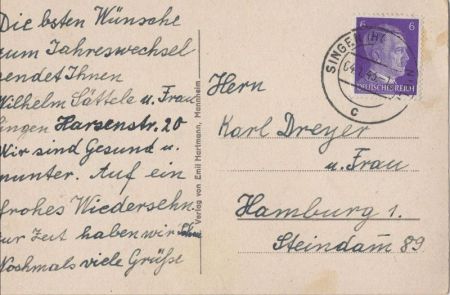 Die besten Wünsche
zum Jahreswechsel
sendet Ihnen
Wilhelm Sättele u. Frau
Singen Harsenstr. 20
Wir sind Gesund u.
munter. Auf ein
frohes Wiedersehn.
zur Zeit haben wir
Nochmals viele Grüße
Verlag von Emil Hartmann, Mannheim
SINGEN (H
c
6 6
DEUTSCHES REICH
Herrn
Karl Dreyer
u. Frau
Hamburg 1.
Steindam̄ 89